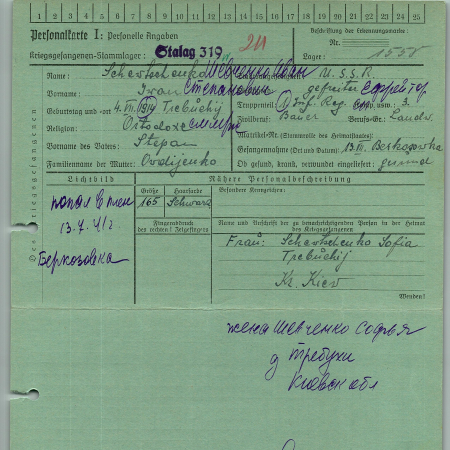 1 2 3 4 5 6 7 8 9 10 11 12 13 14 15 16 17 18 19 20 21 22 23 24 25
Personalkarte I: Personelle Angaben
Beschriftung der Erkennungsmarke:
Kriegsgefangenen-Stammlager: Stalag 319
Nr.
Lager: 1558
Des Kriegsgefangenen
Name: Schewtschenko Шевченко Иван
U.S.S.R.
Vorname: Iwan Степанович
Dienstgrad: Gefreiter Ефрейтор
Geburtstag und -ort 4. VII. 1914 Trebuchij
Truppenteil: Inf. Reg. Komp. usw.: 3.
Religion: Ortodox
Zivilberuf: Bauer Berufs-Gr.: Landw.
Matrikel Nr. (Stammrolle des Heimatstaates):
Vorname des Vaters: Stepan
Gefangennahme (Ort und Datum): Berkozowka
Familienname der Mutter: Owdijenko
Ob gesund, krank, verwundet eingeliefert: gesund
Lichtbild
Nähere Personalbeschreibung
Größe Haarfarbe Besondere Kennzeichen:
165 Schwarz
попал в плен
13.7.41г
Берказовка
Fingerabdruck des rechten! Zeigefingers
Name und Anschrift der zu benachrichtigenden Person in der Heimat des Kriegsgefangenen
Frau: Schewtschenko Sofia
Trebuchij
Kr. Kiew
Wenden!
жена Шевченко Софья
д Требухи
Киевск обл